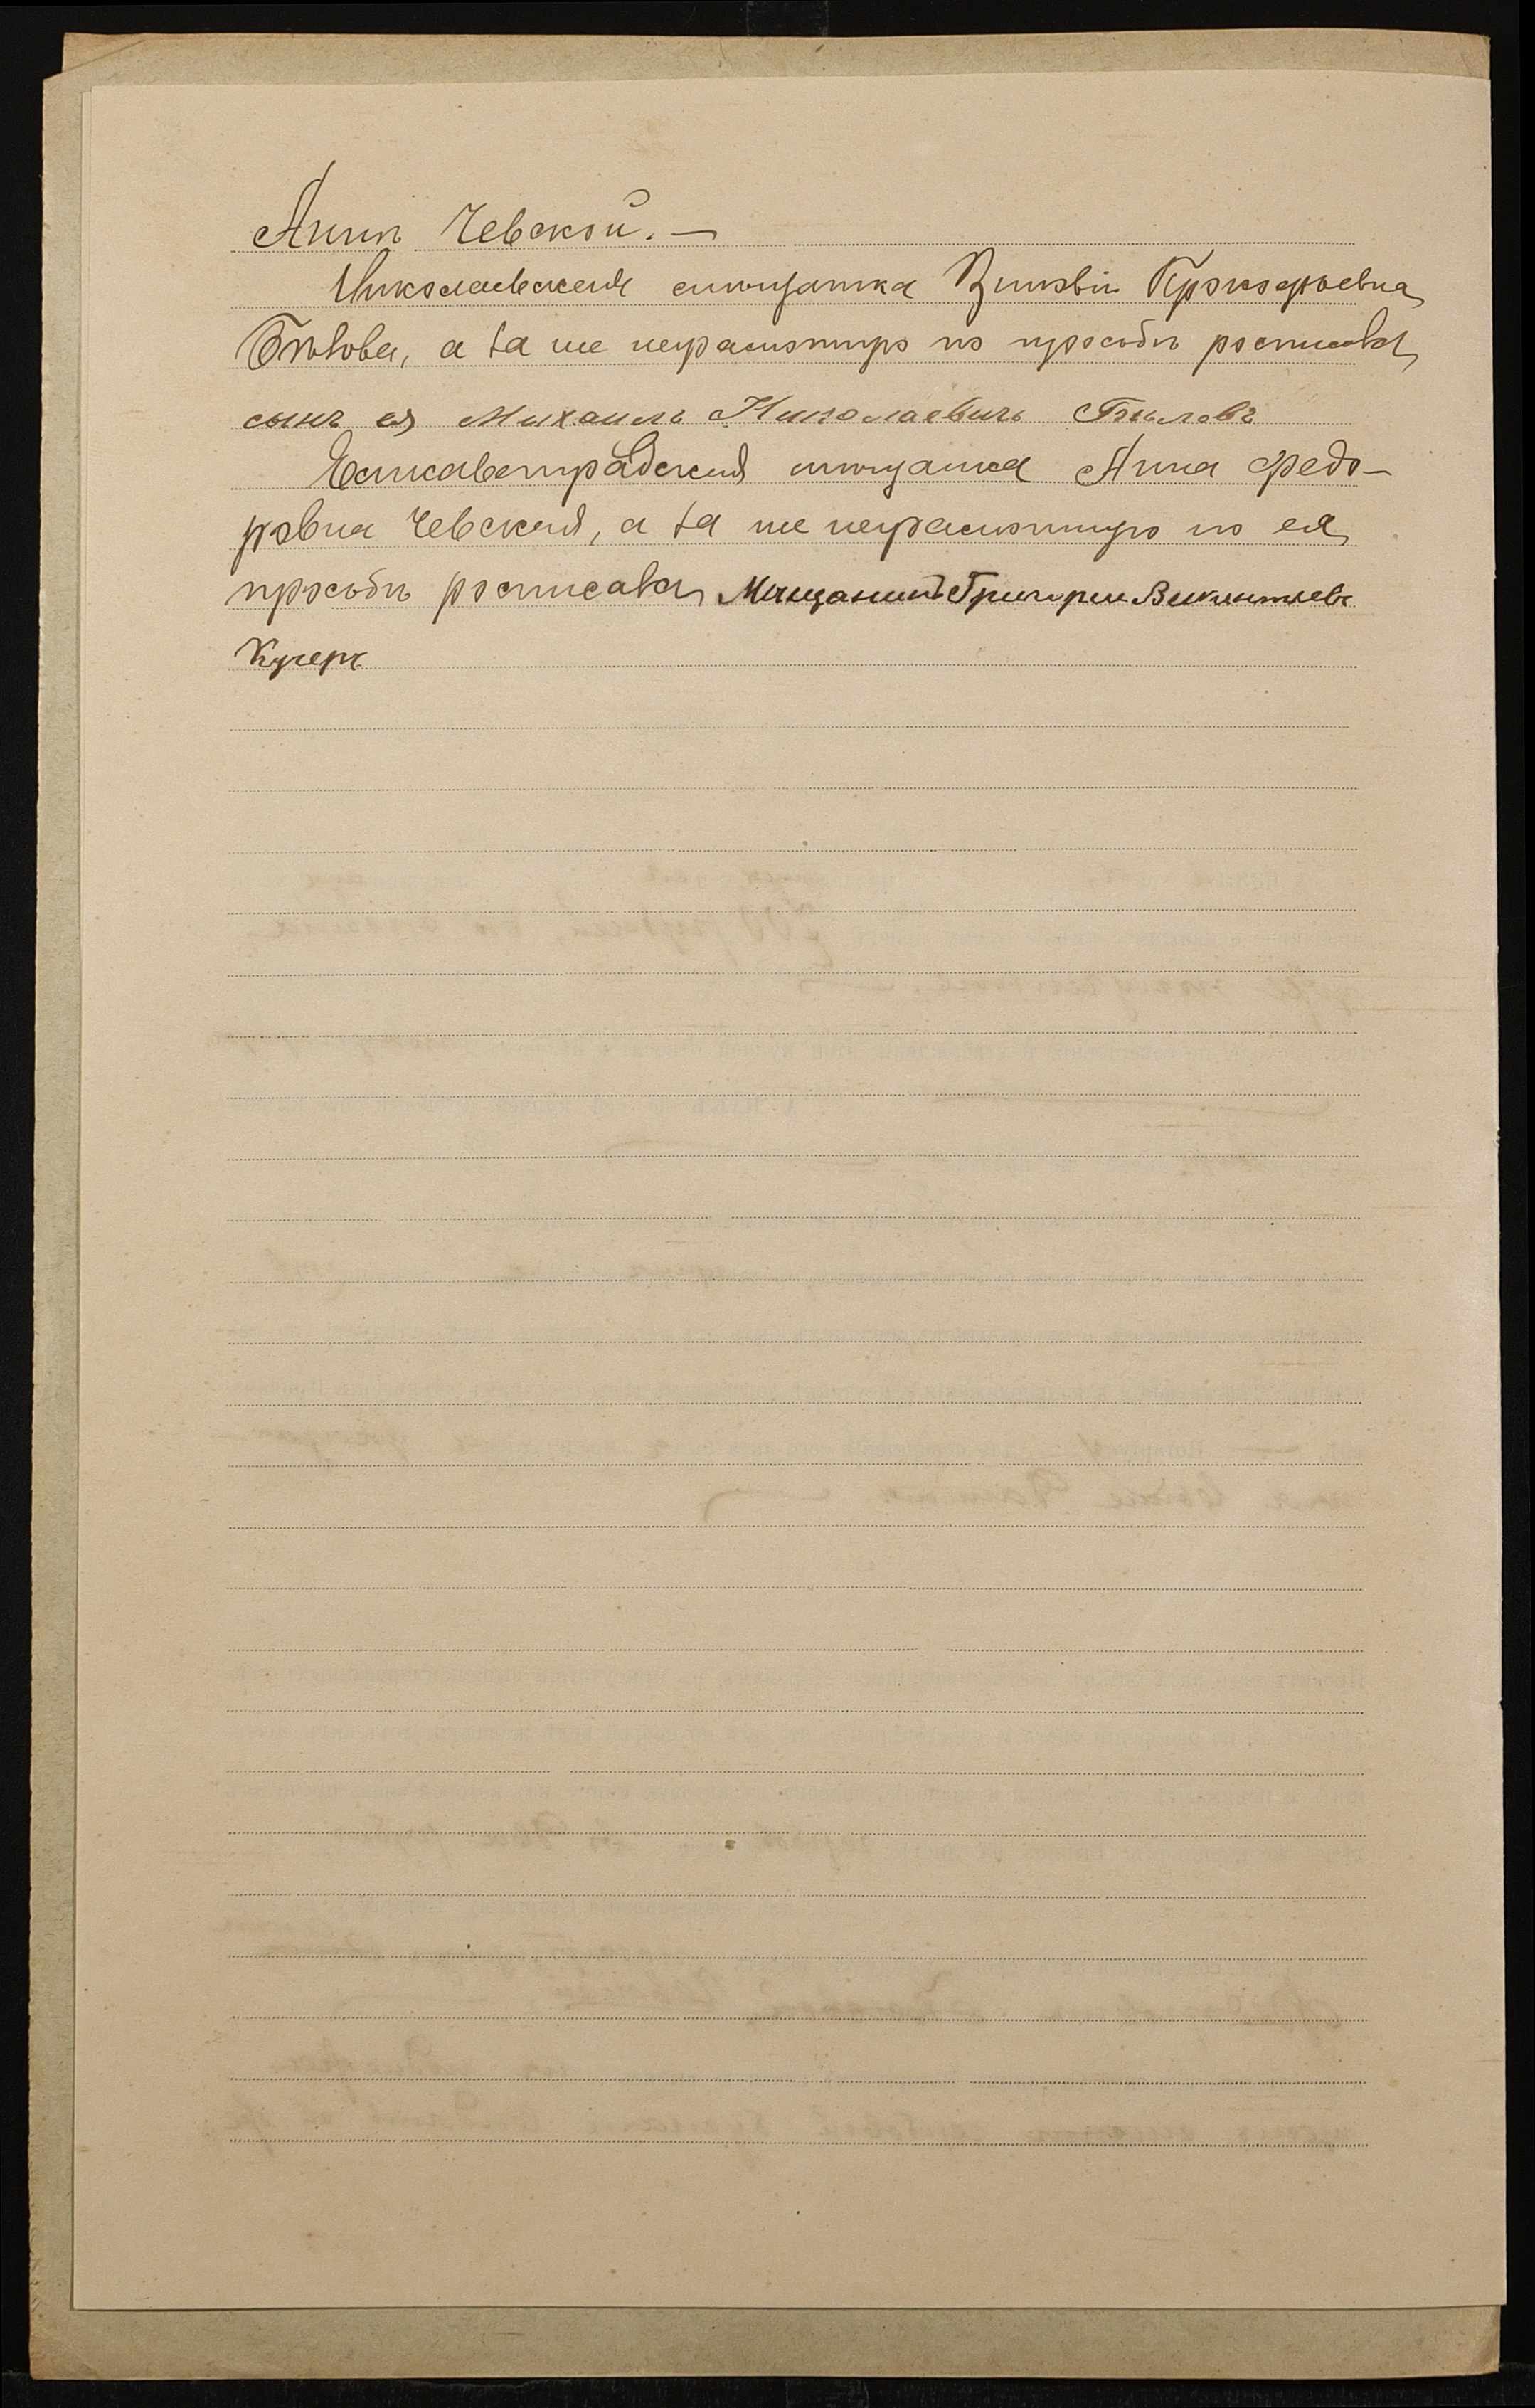 Аннѣ Чевской. —
Николаевская мѣщанка Зиновія Прокофьевна
Бѣлова, а за не неграмотную по просьбѣ росписался
сынъ ея Михаилъ Николаевичъ Бѣловъ
Елисаветградская мѣщанка Анна Федо-
ровна Чевская, а за не неграмотную по ея
просьбѣ росписался Мещанинъ Григорий Викентиевъ
Кучеръ